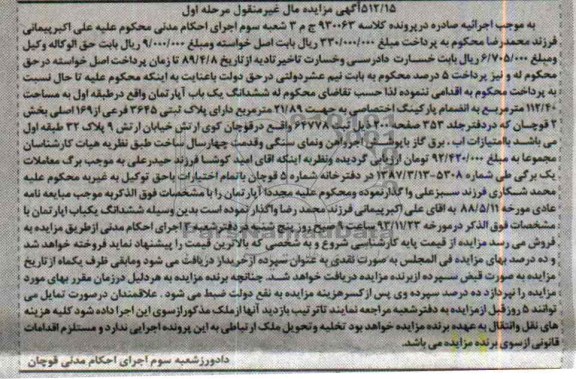 ۵۱۲/۱۵آگهی مزایده مال غیرمنقول مرحله اول
به موجب اجرائیه صادره درپرونده کلاسه ۹۳۰۰۶۳ ج م ۳ شعبه سوم اجرای احکام مدنی محکوم علیه علی اکبرپیمانی
فرزند محمدرضا محکوم به پرداخت مبلغ ۳۳۰/۰۰۰/۰۰۰ ریال بابت اصل خواسته ومبلغ ۹/۰۰۰/۰۰۰ ریال بابت حق الوکاله وکیل
ومبلغ ۶/۷۰۵/۰۰۰ ریال بابت خسارت دادرسی وخسارت تاخیر تادیه از تاریخ ۸۹/۴/۸ تا زمان پرداخت اصل خواسته درحق
محکوم له و نیز پرداخت ۵ درصد محکوم به بابت نیم عشردولتی درحق دولت باعنایت به اینکه محکوم علیه تا حال نسبت
به پرداخت محکوم به اقدامی ننموده لذا حسب تقاضای محکوم له ششدانگ یک باب آپارتمان واقع درطبقه اول به مساحت
۱۱۲/۴۰ مترمربع به انضمام پارکینگ اختصاصی به جهت ۲۱/۸۹ مترمربع دارای پلاک ثبتی ۳۶۴۵ فرعی از۱۶۹ اصلی بخش
۲ قوچان که دردفترجلد ۳۵۳ صفحه ذیل ثبت ۶۴۷۷۸ واقع درقوچان کوی ارتش خیابان ارتش ۹ پلاک ۳۲ طبقه اول
می باشد باامتیازات آب ، برق گاز باپوشش آجرواهن ونمای سنگی وقدمت چهارسال ساخت طبق نظریه هیات کارشناسان
مجموعا به مبلغ ۹۲/۴۲۰/۰۰۰ تومان ارزیابی گردیده ونظربه اینکه آقای امید کوشا فرزند حیدرعلی به موجب برگ معاملات
یک برگی طی شماره ۵۳۰۸-۱۳۸۷/۳/۱۳ در دفترخانه شماره ۵ قوچان باتمام اختیارات باحق توکیل به غیربه محکوم علیه
محمد شکاری فرزند سبزعلی واگذارنموده ومحکوم علیه مجددا آپارتمان را با مشخصات فوق الذکربه موجب مبایعه نامه
عادی مورخه ۸۸/۵/۱۱ به اقای علی اکبرپیمانی فرزند محمد رضا واگذار نموده است بدین وسیله ششدانگ یکباب اپارتمان با
مشخصات فوق الذکر درمورخه ۹۳/۱۱/۲۳ ساعت صبح روز پنج شنبه دردفترشعبه ۳ اجرای احکام مدنی ازطریق مزایده به
فروش می رسد مزایده از قیمت پایه کارشناسی شروع و به شخصی که بالاترین قیمت را پیشنهاد نماید فروخته خواهد شد
و ده درصد بهای مزایده فی المجلس به صورت نقدی به عنوان سپرده ازخریدار دریافت می شود ومابقی ظرف یکماه از تاریخ
مزایده به صورت قبض سپرده ازبرنده مزایده دریافت خواهد شد. چنانچه برنده مزایده به هردلیل درزمان مقرر بهای مورد
مزایده را نپردازد ده درصد سپرده وی پس از کسرهزینه مزایده به نفع دولت ضبط می شود . علاقمندان درصورت تمایل می
توانند ۵ روزقبل ازمزایده به دفترشعبه مراجعه نمایند تاترتیب بازدید آنها ازملک مذکورازسوی این اجرا داده شود کلیه هزینه
های نقل وانتقال به عهده برنده مزایده خواهد بود تخلیه وتحویل ملک ارتباطی به این پرونده اجرایی ندارد و مستلزم اقدامات
قانونی ازسوی برنده مزایده می باشد.
دادورزشعبه سوم اجرای احکام مدنی قوچان